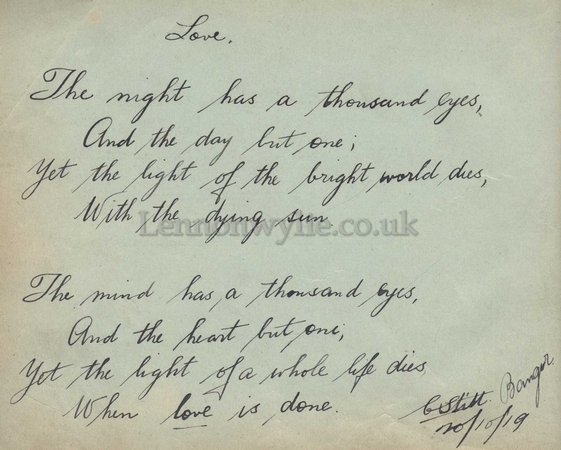 Love.
The night has a thousand eyes,
And the day but one;
Yet the light of the bright world dies,
With the dying sun
Lennonwylie.co.uk
The mind has a thousand eyes,
And the heart but one;
Yet the light of a whole life dies
When love is done.
C Stitt Bangor.
20/10/19